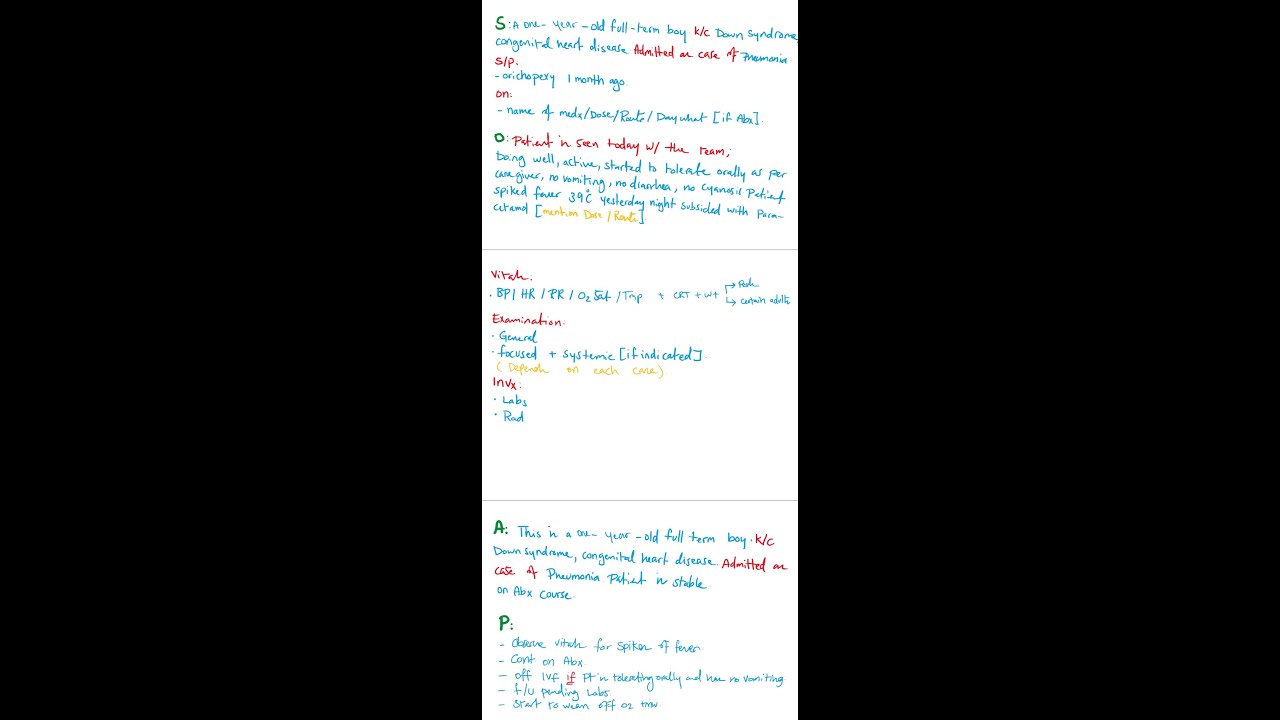 S: A one-year-old full-term boy. k/c Down syndrome,
congenital heart disease. Admitted as case of Pneumonia.
S/P:
- orichopexy 1 month ago.
on:
- name of medx/Dose/Route/Day what [if Abx].
O: Patient is seen today w/ the team;
Doing well, active, started to tolerate orally as per
care giver, no vomiting, no diarrhea, no cyanosis Patient
spiked fever 39°C yesterday night subsided with Para-
cetamol [mention Dose/Route].
Vitals:
. BP/ HR / PR / O2 Sat / Tmp + CRT + wt → Peds
→ certain adults
Examination:
· General
· focused + systemic [if indicated].
(Depends on each case)
Invx:
· Labs
· Rad
A: This is a one-year-old full term boy. k/c
Down syndrome, congenital heart disease. Admitted as
case of Pneumonia. Patient is stable.
on Abx course.
P:
- Observe vitals for spikes of fever.
- Cont on Abx.
- off IVF if Pt is tolerating orally and has no vomiting.
- f/u pending Labs.
- Start to wean off O2 tmw.